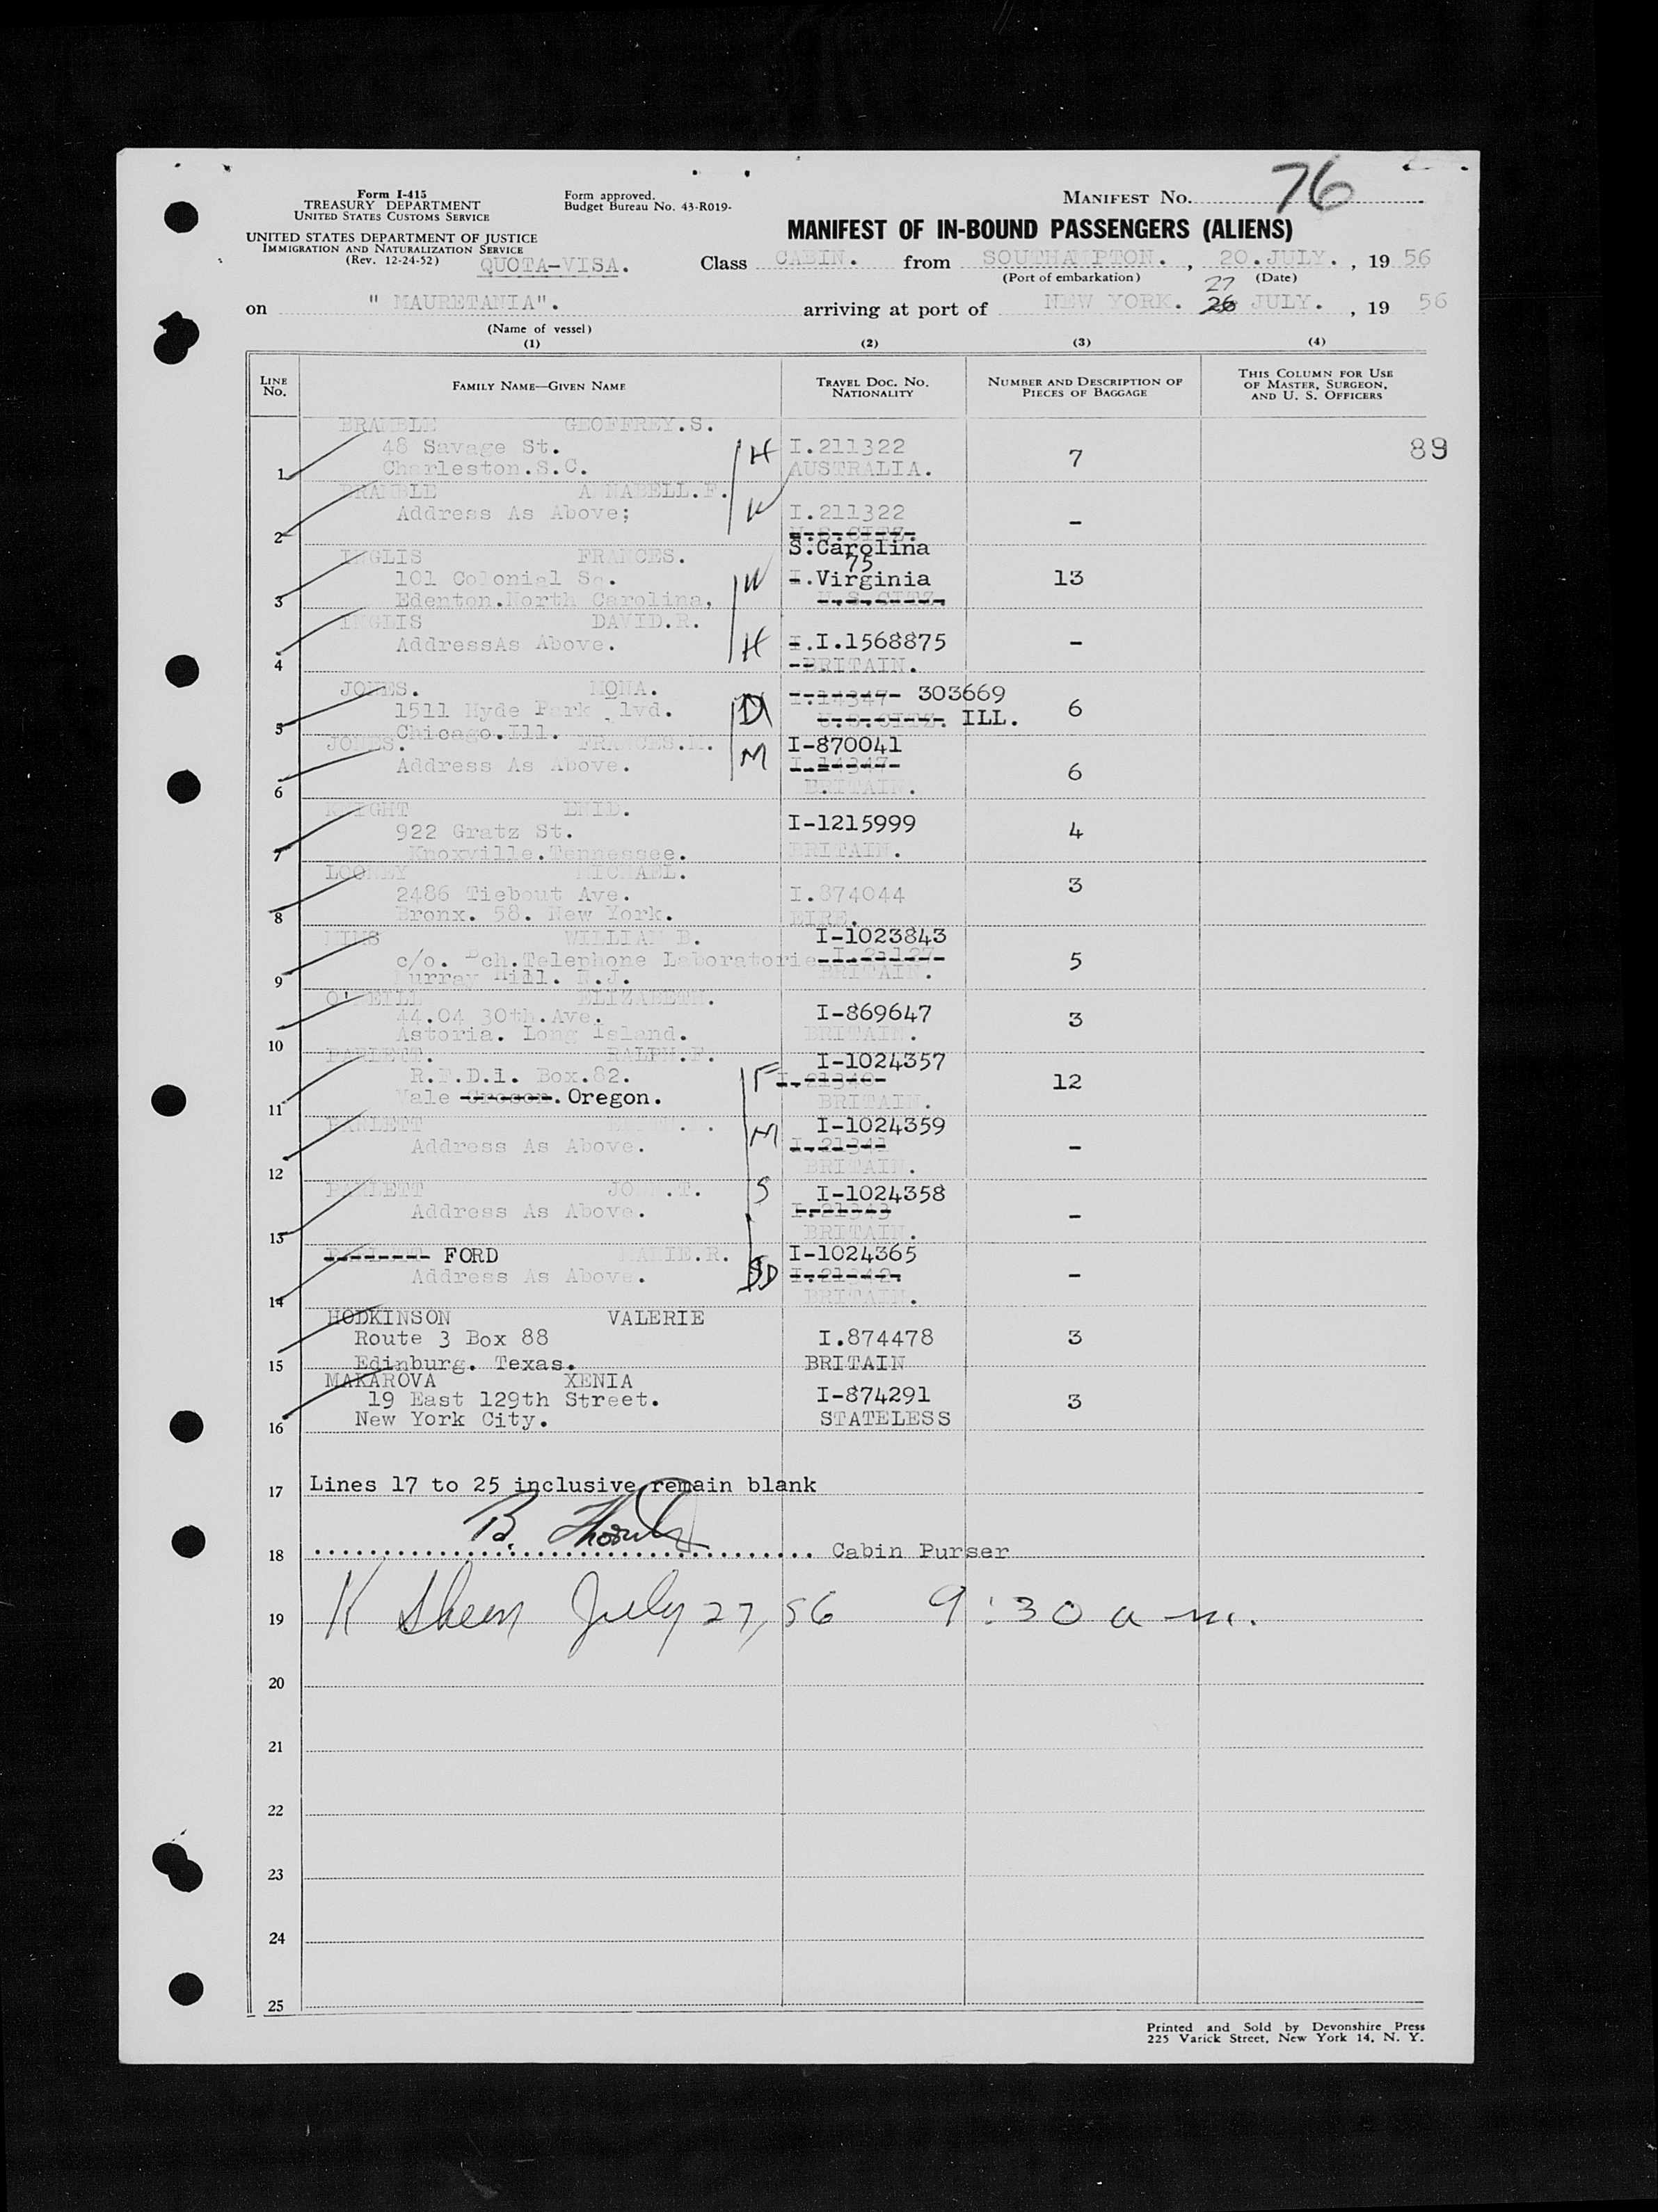 Form I-415
TREASURY DEPARTMENT
UNITED STATES CUSTOMS SERVICE
Form approved.
Budget Bureau No. 43-R019-
MANIFEST NO. 76
UNITED STATES DEPARTMENT OF JUSTICE
IMMIGRATION AND NATURALIZATION SERVICE
(Rev. 12-24-52)
QUOTA-VISA.
MANIFEST OF IN-BOUND PASSENGERS (ALIENS)
Class CABIN. from SOUTHAMPTON. , 20.JULY. , 19 56
(Port of embarkation) (Date)
27
on " MAURETANIA". arriving at port of NEW YORK. 26 JULY. , 19 56
(Name of vessel)
(1) (2) (3) (4)
LINE No. FAMILY NAME—GIVEN NAME TRAVEL DOC. NO. NATIONALITY NUMBER AND DESCRIPTION OF PIECES OF BAGGAGE THIS COLUMN FOR USE OF MASTER, SURGEON, AND U. S. OFFICERS
BRAMBLE GEOFFREY.S.
48 Savage St. H I.211322 7 89
1 Charleston.S.C. AUSTRALIA.
BRAMBLE ANNABELL.F.
Address As Above; W I.211322 -
2 U.S.CITZ.
S.Carolina
INGLIS FRANCES. 75
101 Colonial Sq. W I.Virginia 13
3 Edenton.North Carolina, U.S.CITZ.
INGLIS DAVID.R.
AddressAs Above. H I.I.1568875 -
4 --BRITAIN.
JONES. MONA. I.14347- 303669
1511 Hyde Park Blvd. D U.S.CITZ. ILL. 6
5 Chicago.Ill.
JONES. FRANCES.M. M I-870041
Address As Above. I.14347- 6
6 BRITAIN.
KNIGHT ENID.
922 Gratz St. I-1215999 4
7 Knoxville.Tennessee. BRITAIN.
LOONEY MICHAEL.
2486 Tiebout Ave. I.874044 3
8 Bronx. 58. New York. EIRE.
MIMS WILLIAM B. I-1023843
c/o. Telephone Laboratorie 5
9 Murray Hill. N.J. BRITAIN.
O'NEILL ELIZABETH.
44.04 30th.Ave. I-869647 3
10 Astoria. Long Island. BRITAIN.
PARLETT. RALPH.F. I-1024357
R.F.D.1. Box.82. F I.21340- 12
11 Vale Oregon. BRITAIN.
PARLETT M I-1024359
Address As Above. I.21341 -
12 BRITAIN.
PARLETT JOHN.T. S I-1024358
Address As Above. I.21343 -
13 BRITAIN.
PARLETT FORD MARIE.R. I-1024365
Address As Above. SD I.21342. -
14 BRITAIN.
HODKINSON VALERIE
Route 3 Box 88 I.874478 3
15 Edinburg. Texas. BRITAIN
MAKAROVA XENIA
19 East 129th Street. I-874291 3
16 New York City. STATELESS
17 Lines 17 to 25 inclusive remain blank
18 B. Cabin Purser
19 K Sheen July 27, 56 9:30 a m.
20
21
22
23
24
25
Printed and Sold by Devonshire Press
225 Varick Street, New York 14, N. Y.